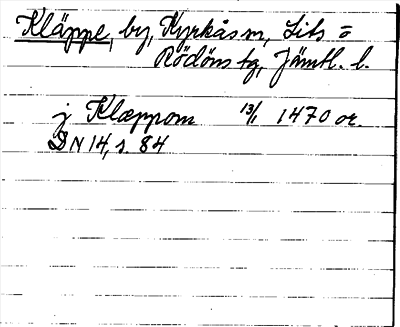 Kläppe, by, Kyrkås sn, Lits ö
Rödöns tg, Jämtl. l.
j Klæppom 13/1 1470 or.
DN 14, s. 84